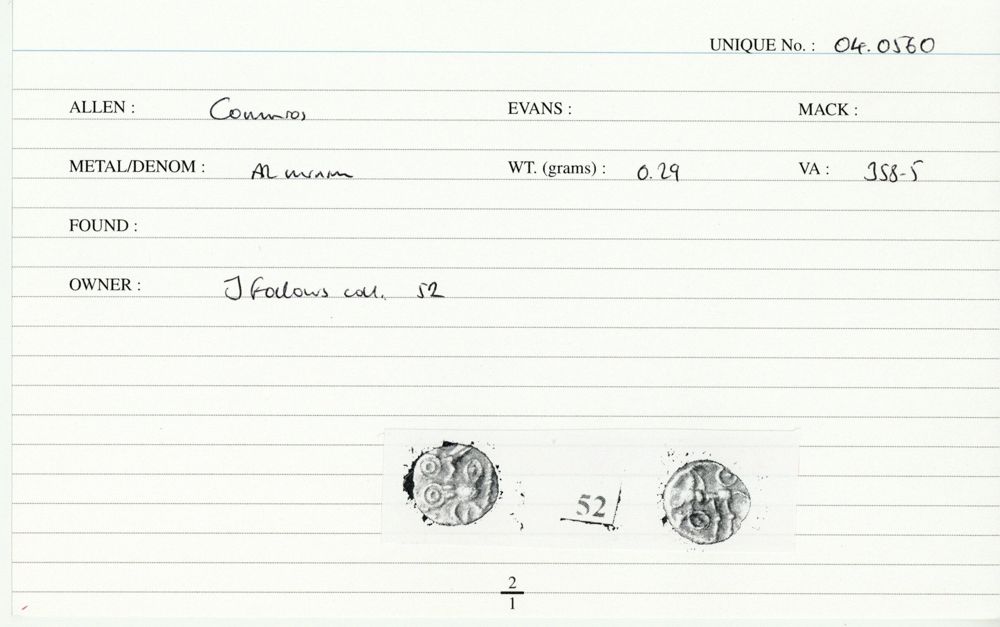 UNIQUE No. : 04.0560
ALLEN : Commios EVANS : MACK :
METAL/DENOM : AR minim WT. (grams) : 0.29 VA : 358-5
FOUND :
OWNER : J Follows coll. 52
52
2
1